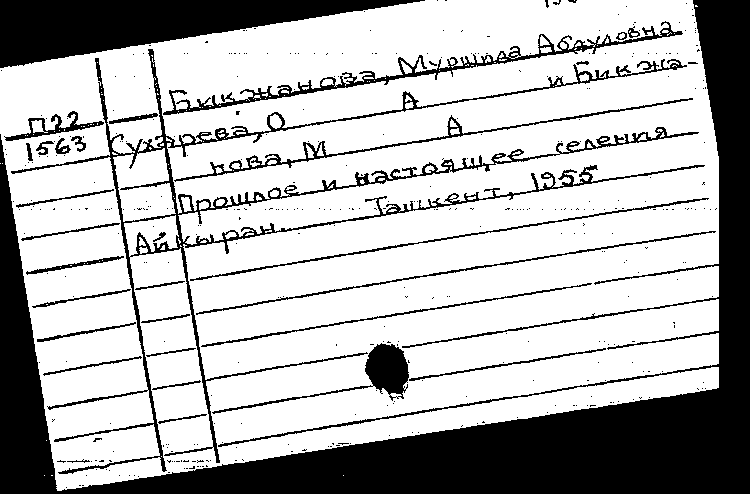 Бикжанова, Муршида Абдуловна
П22
1563
Сухарева, О А и Бикжа-
нова, М А
Прошлое и настоящее селения
Айкыран. Ташкент, 1955